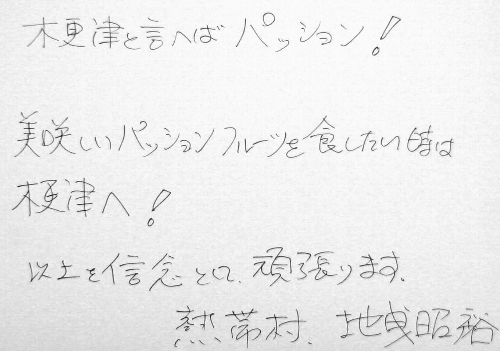 木更津と言へばパッション!
美味しいパッションフルーツを食したい時は
木更津へ!
以上を信念として、頑張ります。
熱帯村、地曳昭裕